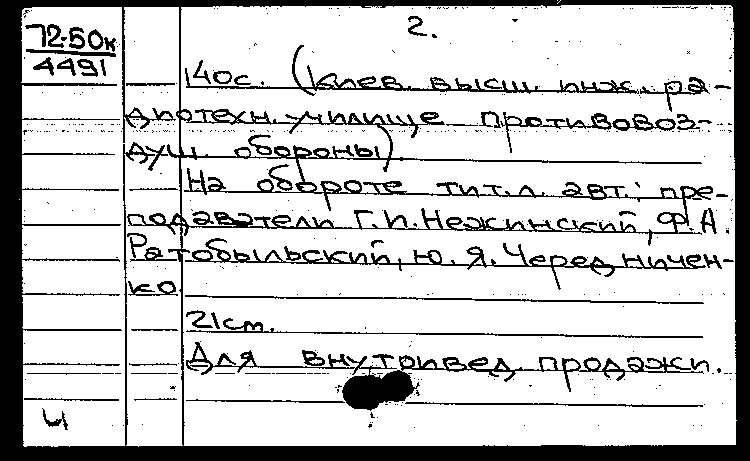 2.
72-50к
4491
140с. (Киев. высш. инж. ра-
диотехн. училище противовоз-
душ. обороны).
На обороте тит. л. авт.: пре-
подаватели Г.И. Нежинский, Ф.А.
Ратобыльский, Ю.Я. Череднichен-
ко.
21см.
Для внутривед. продажи.